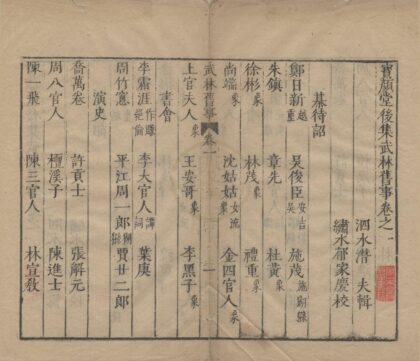 寶顏堂後集武林舊事卷之一
泗水潛夫輯
繡水郁家慶校
棊待詔
鄭日新越 吳俊臣安吉吳 施茂施朔縣
朱鎮 章先 杜黃象
徐彬象 林茂象 禮重象
尚端象 沈姑姑象女流 金四官人象
武林舊事 卷一 一
上官夫人象 王安哥象 李黑子象
書會
李霜涯作賺絕倫 李大官人譚詞 葉庚
周竹窻 平江周一郎猢猻 賈廿二郎
演史
喬萬卷 許貢士 張解元
周八官人 檀溪子 陳進士
陳一飛 陳三官人 林宣敎